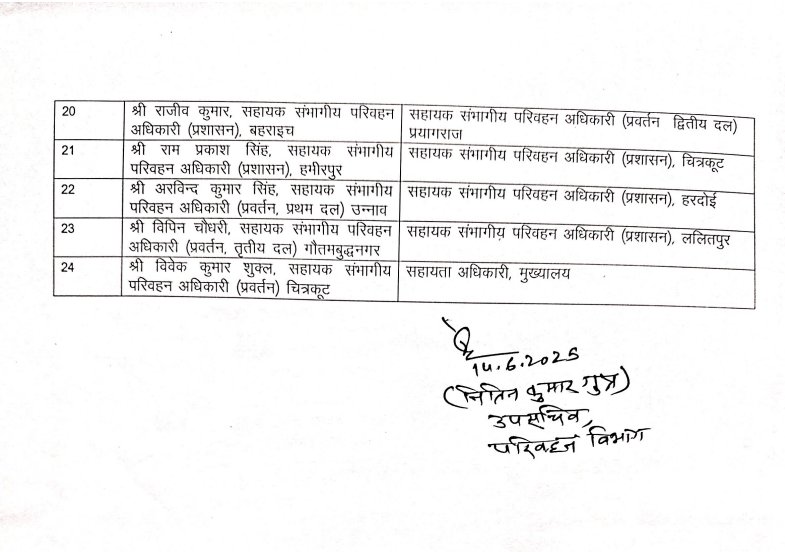 20 श्री राजीव कुमार, सहायक संभागीय परिवहन सहायक संभागीय परिवहन अधिकारी (प्रवर्तन द्वितीय दल)
अधिकारी (प्रशासन), बहराइच प्रयागराज
21 श्री राम प्रकाश सिंह, सहायक संभागीय सहायक संभागीय परिवहन अधिकारी (प्रशासन), चित्रकूट
परिवहन अधिकारी (प्रशासन), हमीरपुर
22 श्री अरविन्द कुमार सिंह, सहायक संभागीय सहायक संभागीय परिवहन अधिकारी (प्रशासन), हरदोई
परिवहन अधिकारी (प्रवर्तन, प्रथम दल) उन्नाव
23 श्री विपिन चौधरी, सहायक संभागीय परिवहन सहायक संभागीय परिवहन अधिकारी (प्रशासन), ललितपुर
अधिकारी (प्रवर्तन, तृतीय दल) गौतमबुद्धनगर
24 श्री विवेक कुमार शुक्ल, सहायक संभागीय सहायता अधिकारी, मुख्यालय
परिवहन अधिकारी (प्रवर्तन) चित्रकूट
14.6.2025
(नितिन कुमार गुप्त)
उपसचिव,
परिवहन विभाग